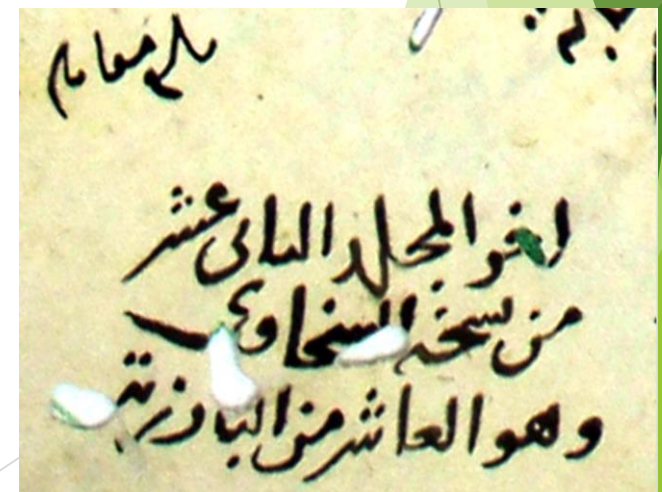 بلغ مقابلة
اخر المجلد الثاني عشر
من نسخة السخاوي
وهو العاشر من الباذرية